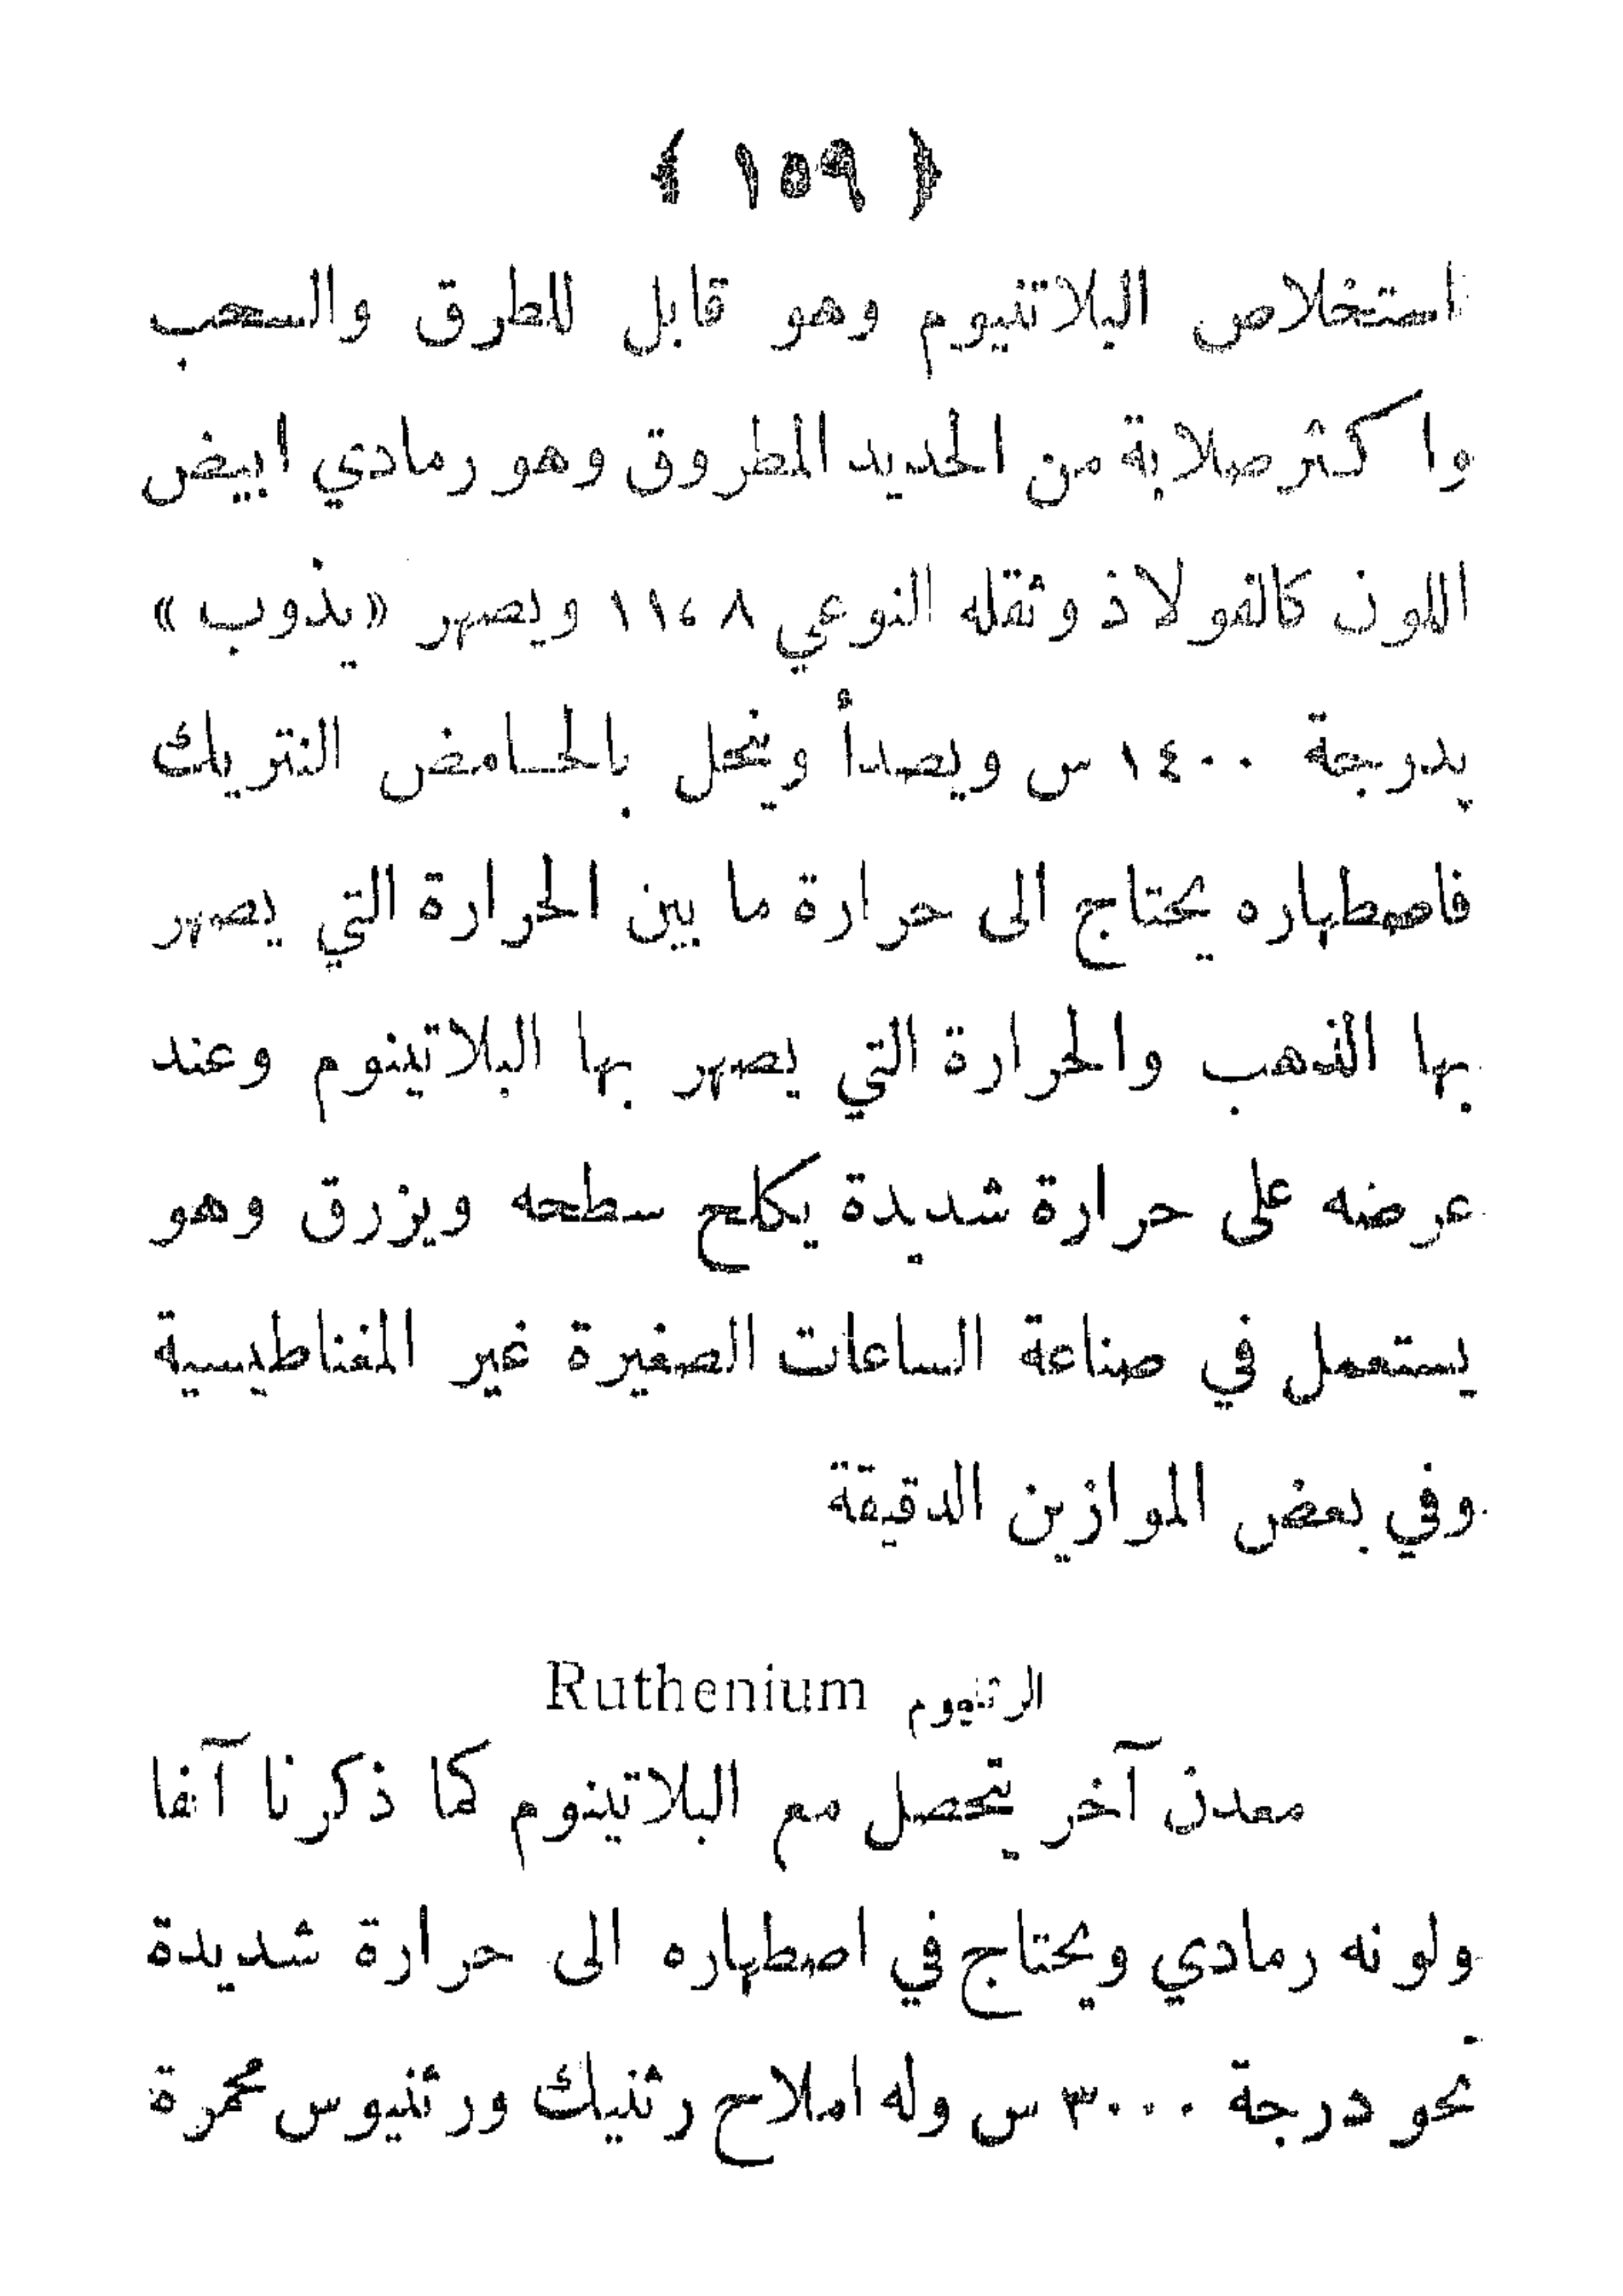 ﴿ ١٥٩ ﴾
استخلاص البلاتنيوم وهو قابل للطرق والسحب
واكثر صلابة من الحديد المطروق وهو رمادي ابيض
اللون كالفولاذ وثقله النوعي ١١،٨ ويصهر «يذوب»
بدرجة ١٤٠٠ س ويصدأ وينحل بالحامض النتريك
فاصطهاره يحتاج الى حرارة ما بين الحرارة التي يصهر
بها الذهب والحرارة التي يصهر بها البلاتينوم وعند
عرضه على حرارة شديدة يكلح سطحه ويزرق وهو
يستعمل في صناعة الساعات الصغيرة غير المغناطيسية
وفي بعض الموازين الدقيقة
الرثنيوم Ruthenium
معدن آخر يتحصل مع البلاتينوم كما ذكرنا آنفا
ولونه رمادي ويحتاج في اصطهاره الى حرارة شديدة
نحو درجة ٣٠٠٠ س وله املاح رثنيك ورثنيوس محمرة